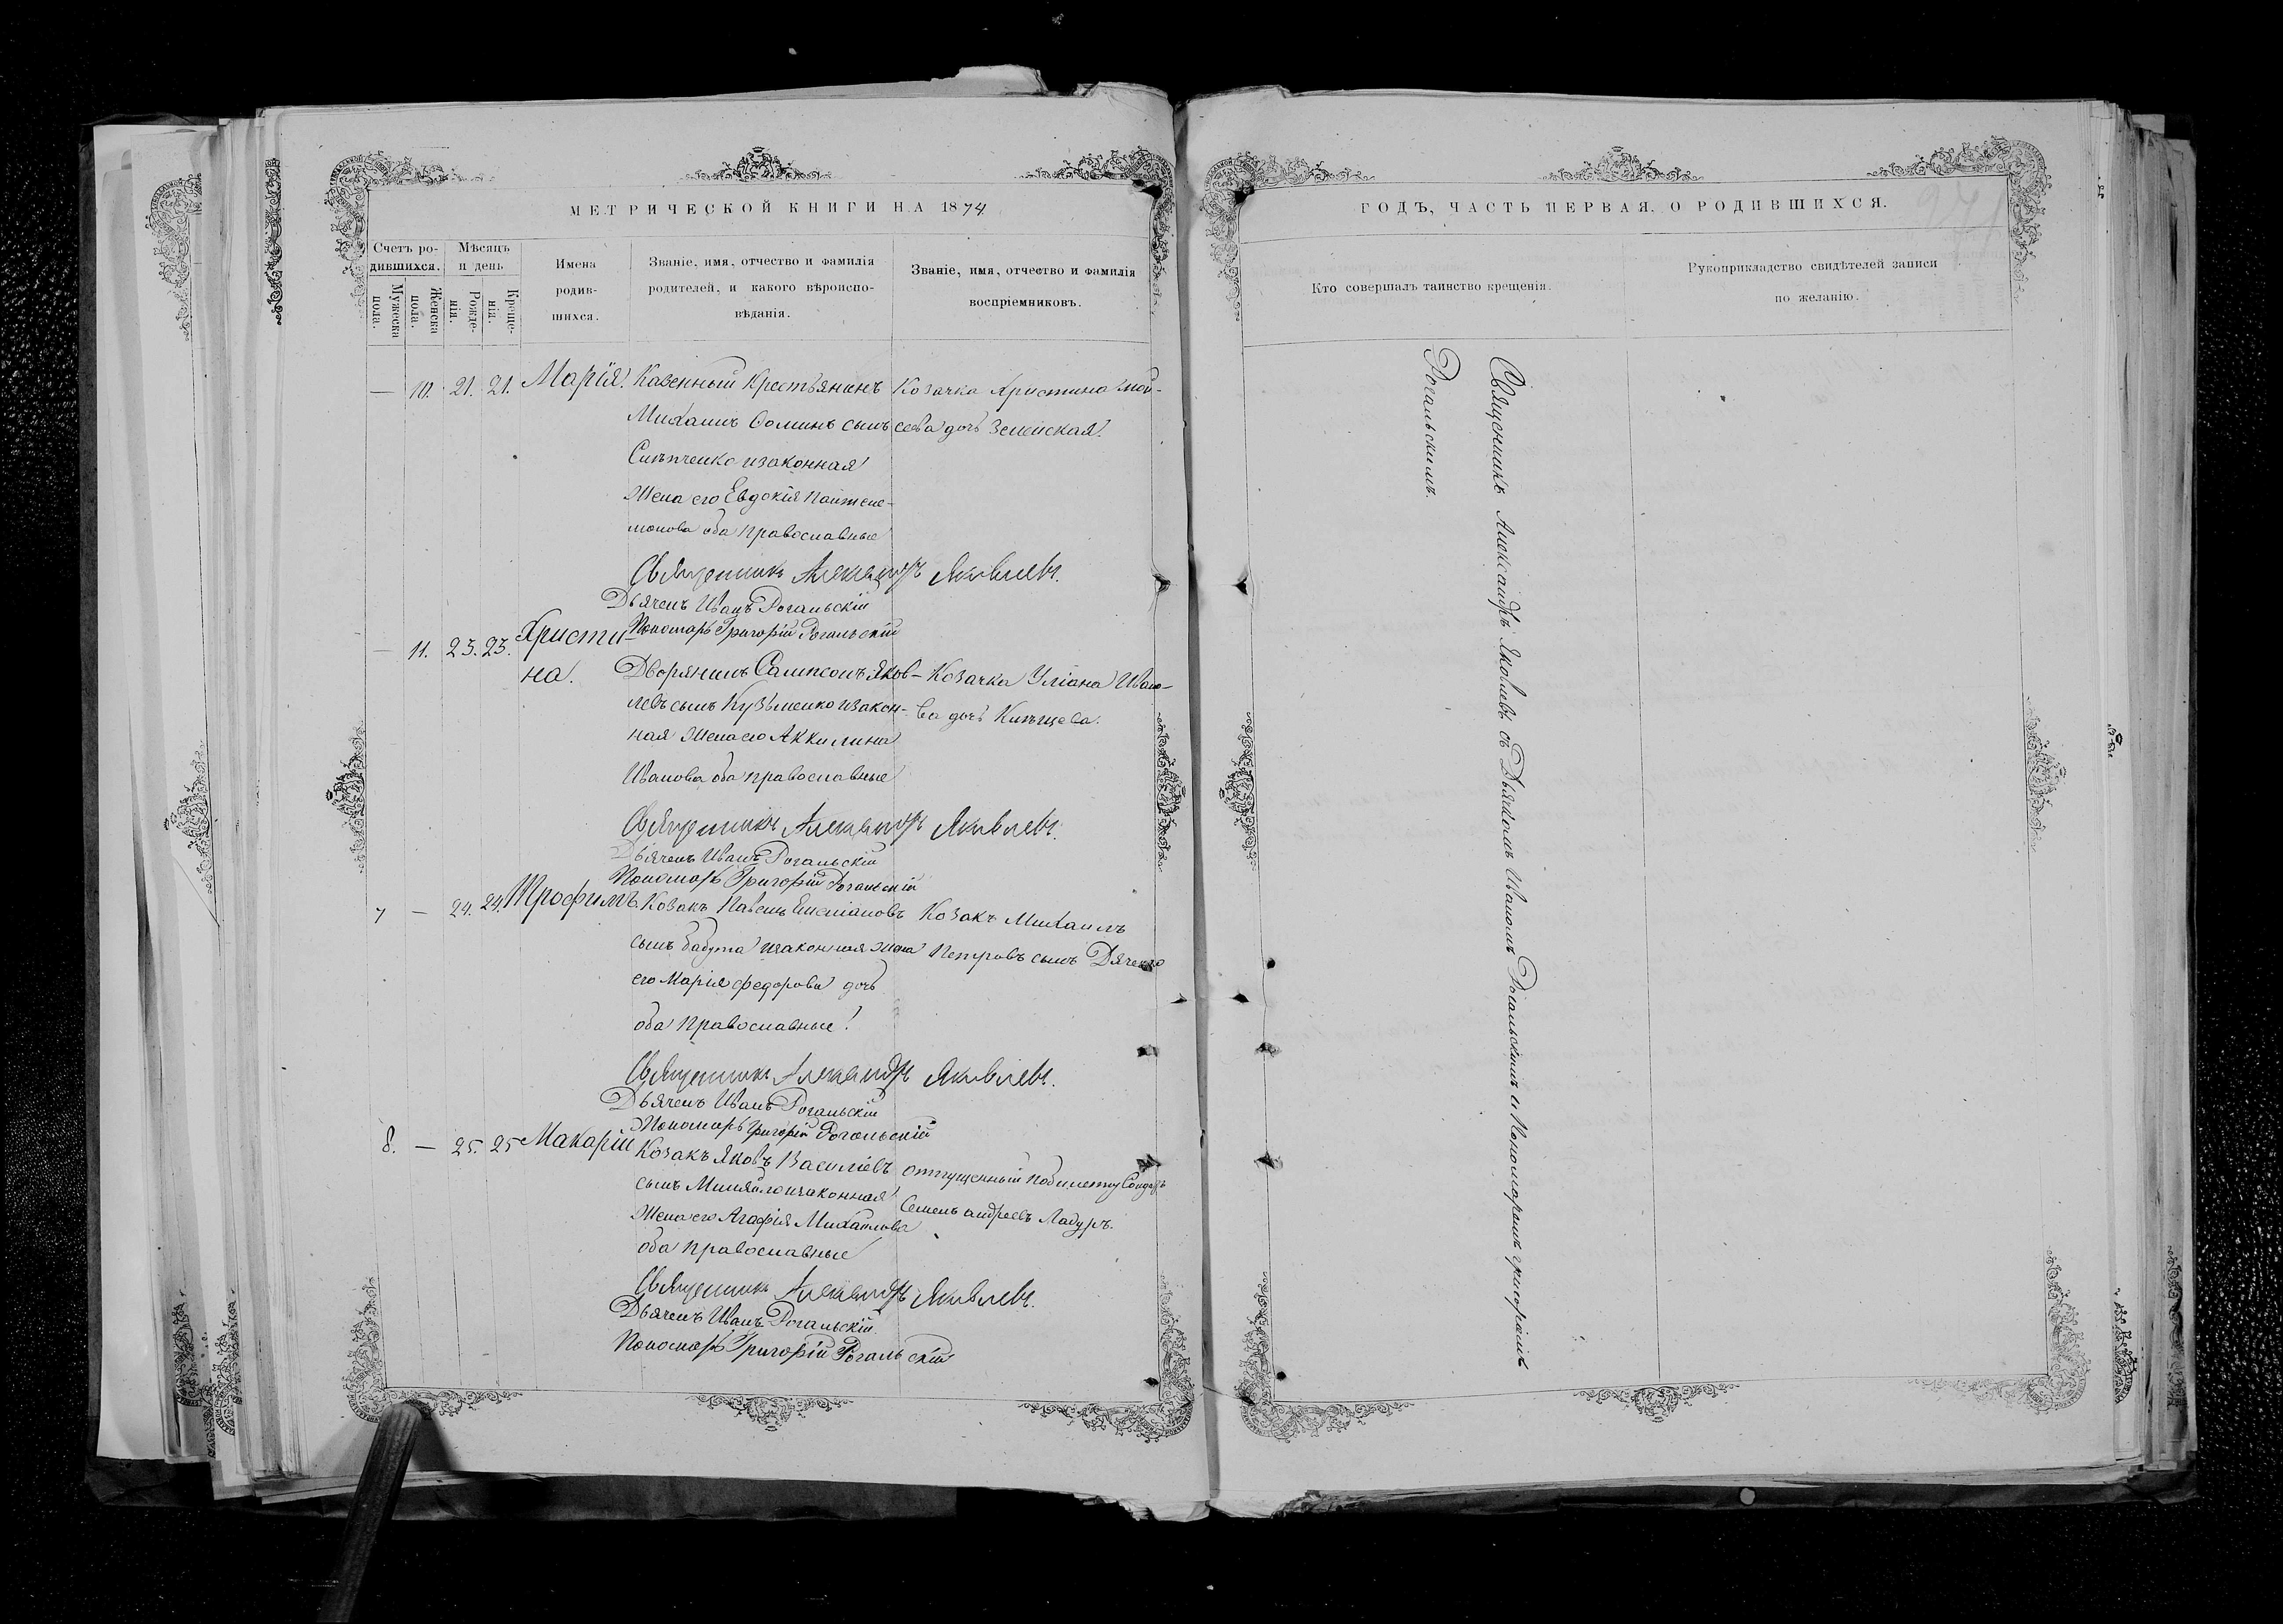 МЕТРИЧЕСКОЙ КНИГИ НА 1874
Счетъ ро-
дившихся.
Мужеска
пола.
Женска
пола.
Мѣсяцъ
и день
Рожде-
нія.
Креще-
нія.
Имена
родив-
шихся.
Званіе, имя, отчество и фамилія
родителей, и какого вѣроиспо-
вѣданія.
Званіе, имя, отчество и фамилія
воспріемниковъ.
— 10. 21. 21. Марія. Казенный Крестьянинъ
Михаилъ Ѳоминъ сынъ
изаконная
Жена его Евдокія Пантеле-
монова оба православные
Козачка Христина Мой-
сеева дочь
Священникъ Александръ Яковлевъ.
Дьячекъ Иванъ Рогальскій
Пономарь Григорій Рогальскій
— 11. 23. 23. Христи-
на.
Дворянинъ Сампсонъ Яков-
левъ сынъ Кузьменко изакон-
ная Жена его Аккилина
Иванова оба православные
Козачка Уліана Ивано-
ва дочь
Священникъ Александръ Яковлевъ.
Дьячекъ Иванъ Рогальскій
Пономарь Григорій Рогальскій
7 — 24. 24. Трофимъ. Козакъ Павелъ Емеліановъ
сынъ Бабута изаконная жена
его Марія Федорова дочь
оба православные
Козакъ Михаилъ
Петровъ сынъ Дяченко
Священникъ Александръ Яковлевъ.
Дьячекъ Иванъ Рогальскій
Пономарь Григорій Рогальскій
8. — 25. 25 Макарій Козакъ Яковъ Василіевъ
сынъ изаконная
Жена его Агафія Михайлова
оба православные
отпущенный побилету Солдатъ
Семенъ андреевъ Ладуръ.
Священникъ Александръ Яковлевъ.
Дьячекъ Иванъ Рогальскій
Пономарь Григорій Рогальскій
ГОДЪ, ЧАСТЬ ПЕРВАЯ, О РОДИВШИХСЯ.
Кто совершалъ таинство крещенія.
Рукоприкладство свидѣтелей записи
по желанію.
Священникъ Александръ Яковлевъ съ Дьячкомъ Иваномъ Рогальскимъ и Пономаремъ григоріемъ
Рогальскимъ.